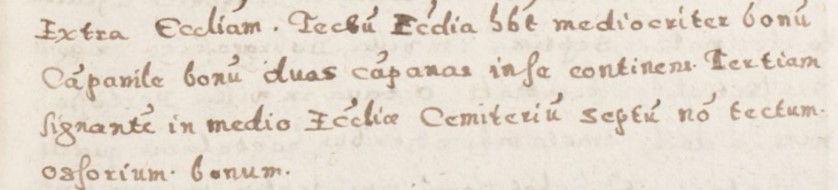 Extra Eccliám. Tectū Ecclia hbt mediocriter bonū
Cāpanile bonū duas cāpanas in se continens. Tertiam
signantē in medio Ecc̄liæ Cemiteriū septū nō tectum.
ossorium. bonum.